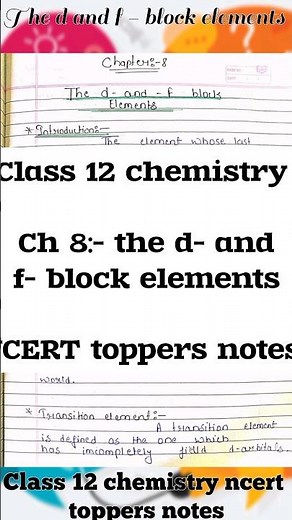 The d and f - block elements
Chapter:-8
The d- and -f block
Elements
* Introduction:-
The element whose last
Class 12 chemistry
Ch 8:- the d- and
f- block elements
NCERT toppers notes
world.
* Transition element:-
A transition element
is defined as the one which
has incompletely filled d-orbitals.
Class 12 chemistry ncert
toppers notes